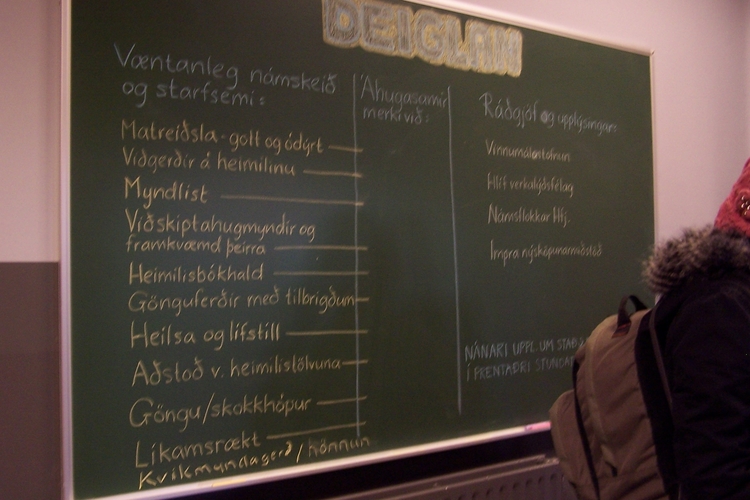 DEIGLAN
Væntanleg námskeið
og starfsemi:
Matreiðsla - gott og ódýrt
Viðgerðir á heimilinu
Myndlist
Viðskiptahugmyndir og
framkvæmd þeirra
Heimilisbókhald
Gönguferðir með tilbrigðum
Heilsa og lífstíll
Aðstoð v. heimilistölvuna
Göngu/skokkhópur
Líkamsrækt
Kvikmyndagerð / hönnun
Áhugasamir
merki við:
Ráðgjöf og upplýsingar:
Vinnumálastofnun
Hlíf verkalýðsfélag
Námsflokkar Hfj.
Impra nýsköpunarmiðstöð
NÁNARI UPPL. UM
Í PRENTAÐRI